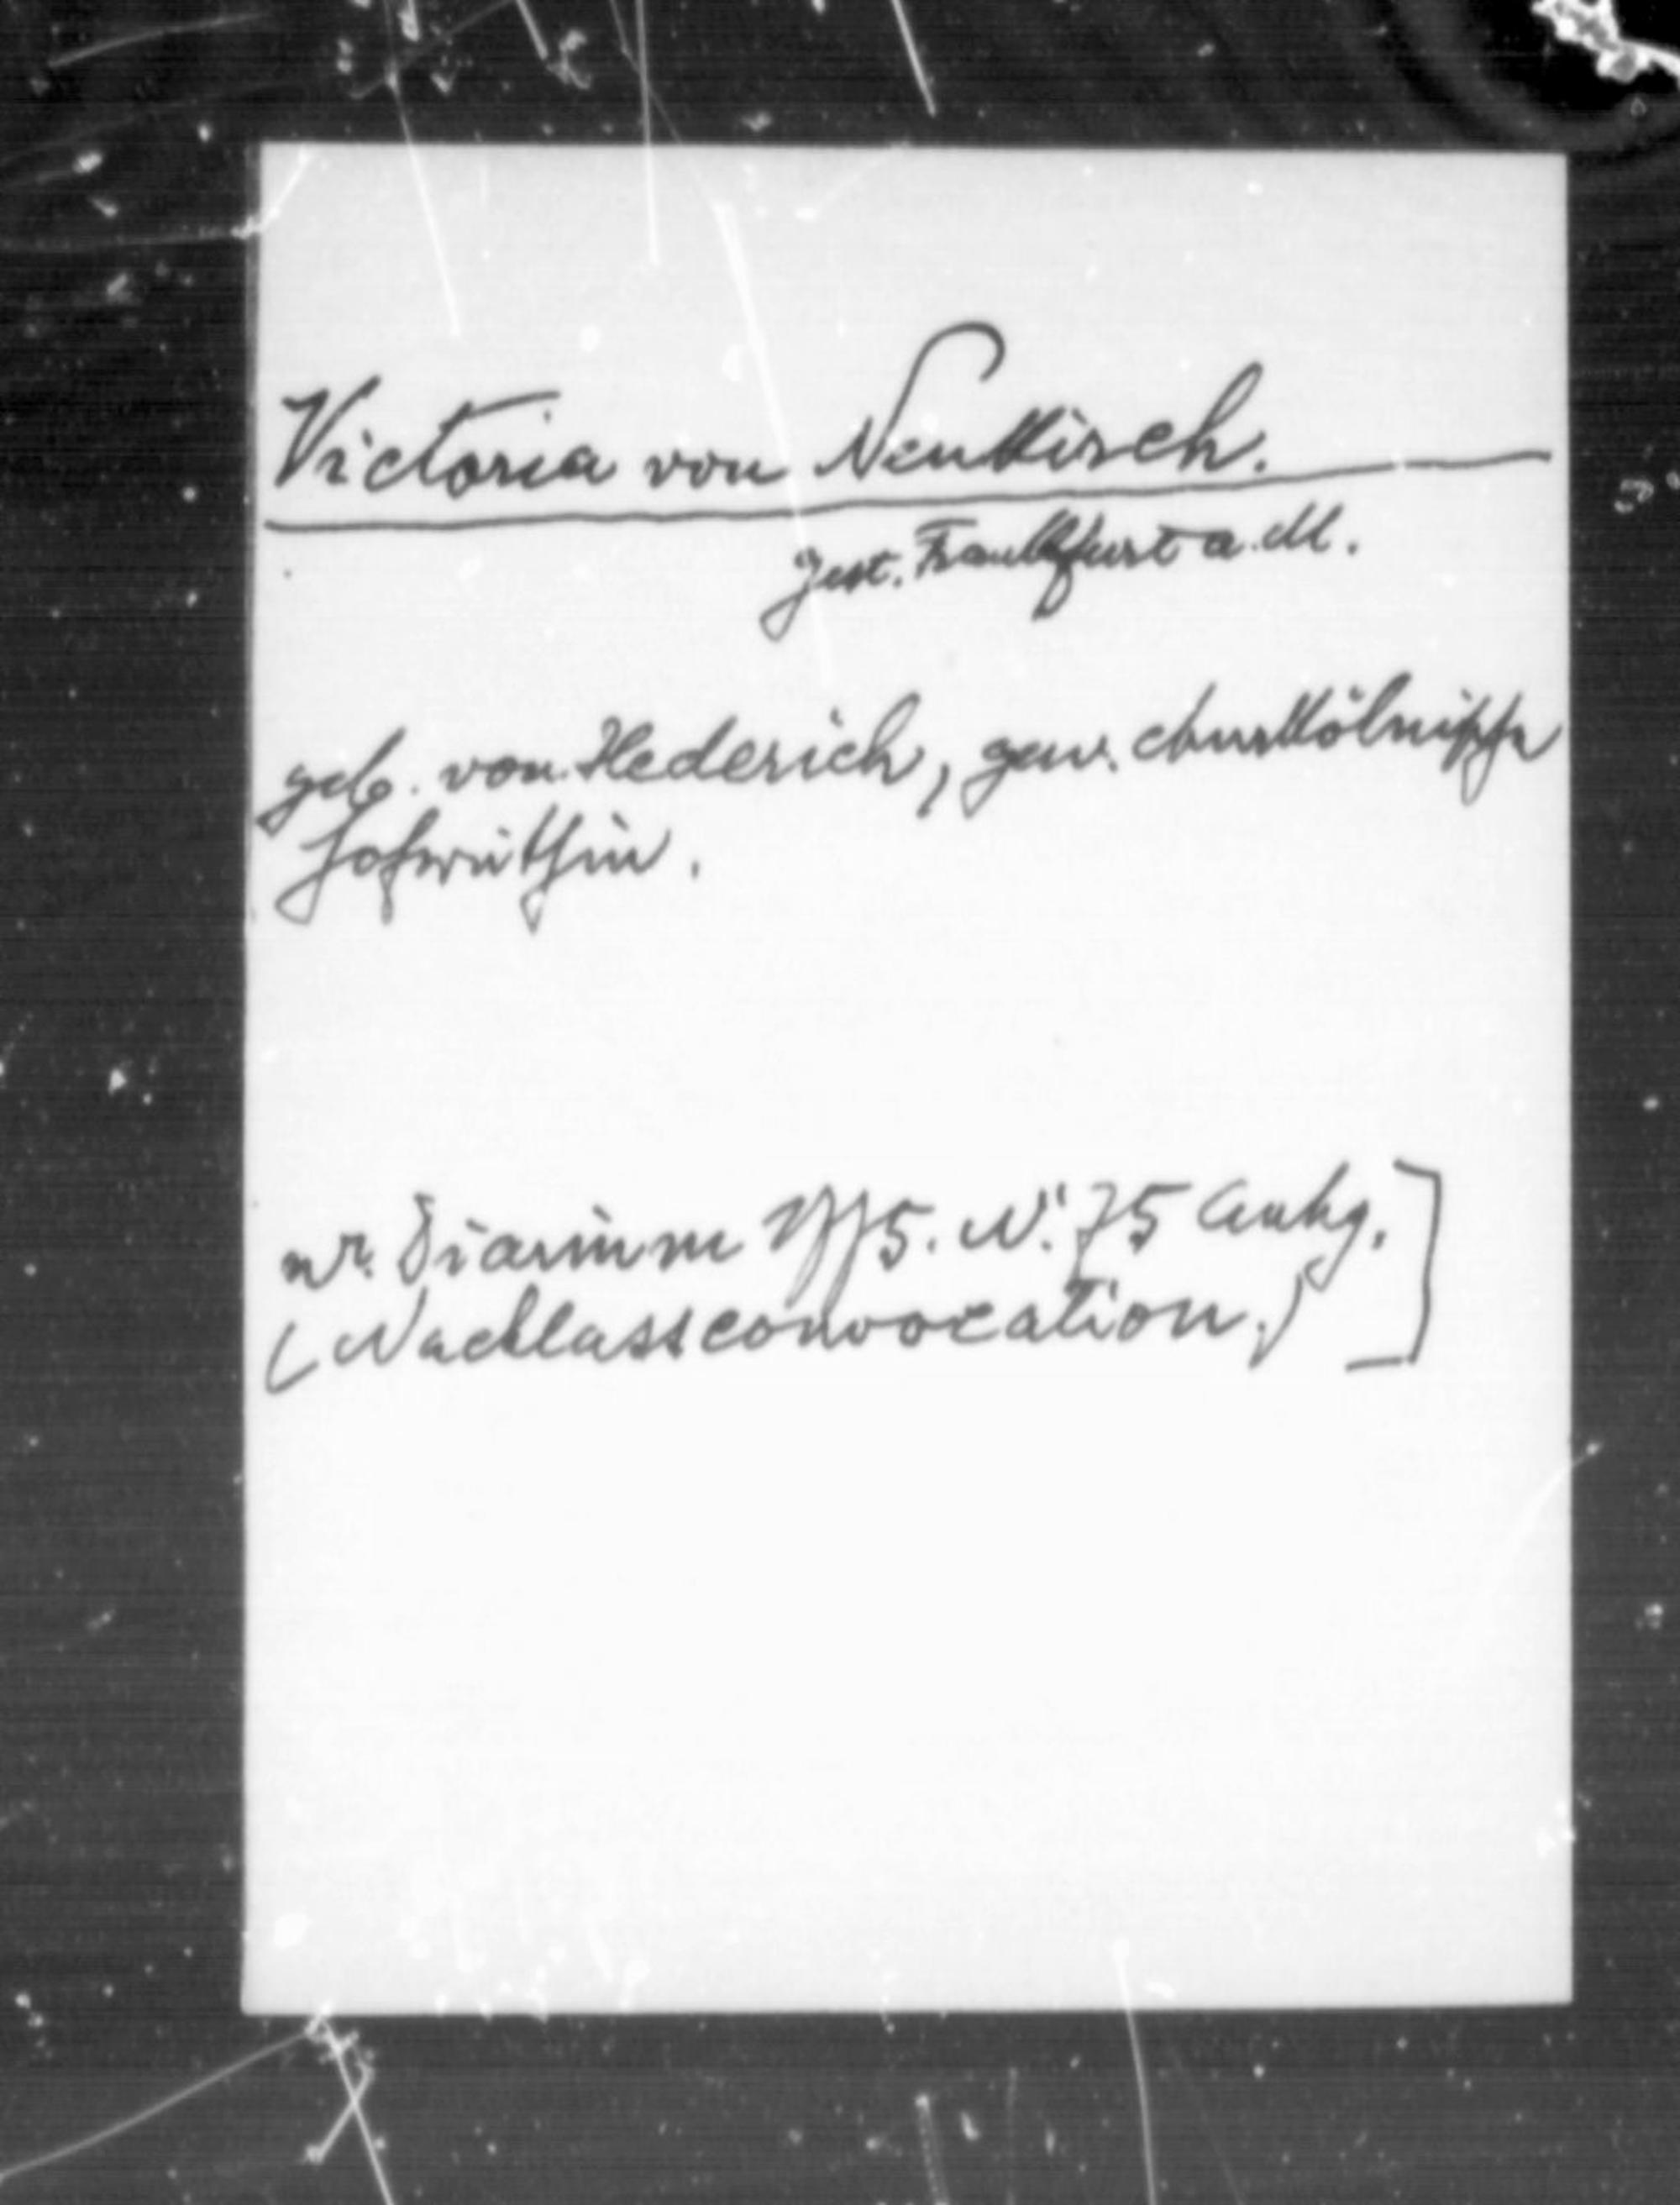 Victoria von Neukirch.
gest. Frankfurt a. M.
geb. von Hederich, gew. churkölnische
Hofräthin.
Wr. Diarium 1775. Nr. 75 Anhg.
(Nachlassconvocation.)]